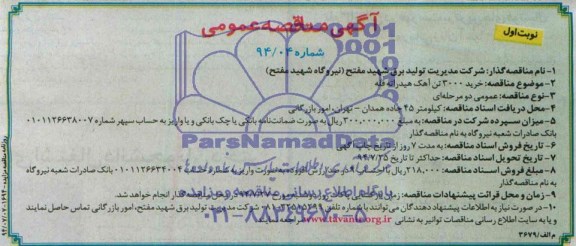 آگهی مناقصه عمومی
نوبت اول
شماره ۹۴/۰۴
۱- نام مناقصه گذار: شرکت مدیریت تولید برق شهید مفتح (نیروگاه شهید مفتح)
۲- موضوع مناقصه: خرید ۳۰۰۰ تن آهک هیدراته فله
۳- نوع مناقصه: عمومی دو مرحله‌ای
۴- محل دریافت اسناد مناقصه: کیلومتر ۴۵ جاده همدان - تهران، امور بازرگانی
۵- میزان سپرده شرکت در مناقصه: به مبلغ ۳۰۰,۰۰۰,۰۰۰ ریال به صورت ضمانت‌نامه بانکی یا چک بانکی و یا واریز به حساب سپهر شماره ۰۱۰۱۱۲۶۶۳۸۰۰۷
بانک صادرات شعبه نیروگاه به نام مناقصه گذار
۶- تاریخ فروش اسناد مناقصه: به مدت ۷ روز از تاریخ چاپ آگهی
۷- تاریخ تحویل اسناد مناقصه: حداکثر تا تاریخ ۹۴/۷/۲۵
۸- مبلغ فروش اسناد مناقصه: ۲۱۸,۰۰۰ ریال به صورت واریز به شماره حساب ۰۱۰۱۱۲۶۶۳۴۰۰۴ بانک صادرات شعبه نیروگاه
به نام مناقصه گذار
۹- زمان و محل قرائت پیشنهادات مناقصه: انجام خواهد شد.
۱۰- در صورت نیاز به اطلاعات پیشنهاد دهندگان می‌توانند با شماره تلفن شرکت مدیریت تولید برق شهید مفتح، امور بازرگانی تماس حاصل نمایند
و یا به سایت اطلاع رسانی مناقصات توانیر به نشانی www.tavanir.org.ir مراجعه نمایند
م الف/۳۶۷۹
ParsNamadData
پایگاه اطلاع رسانی مناقصه و مزایده
۰۲۱-۸۸۳۴۹۶۷۰-۵